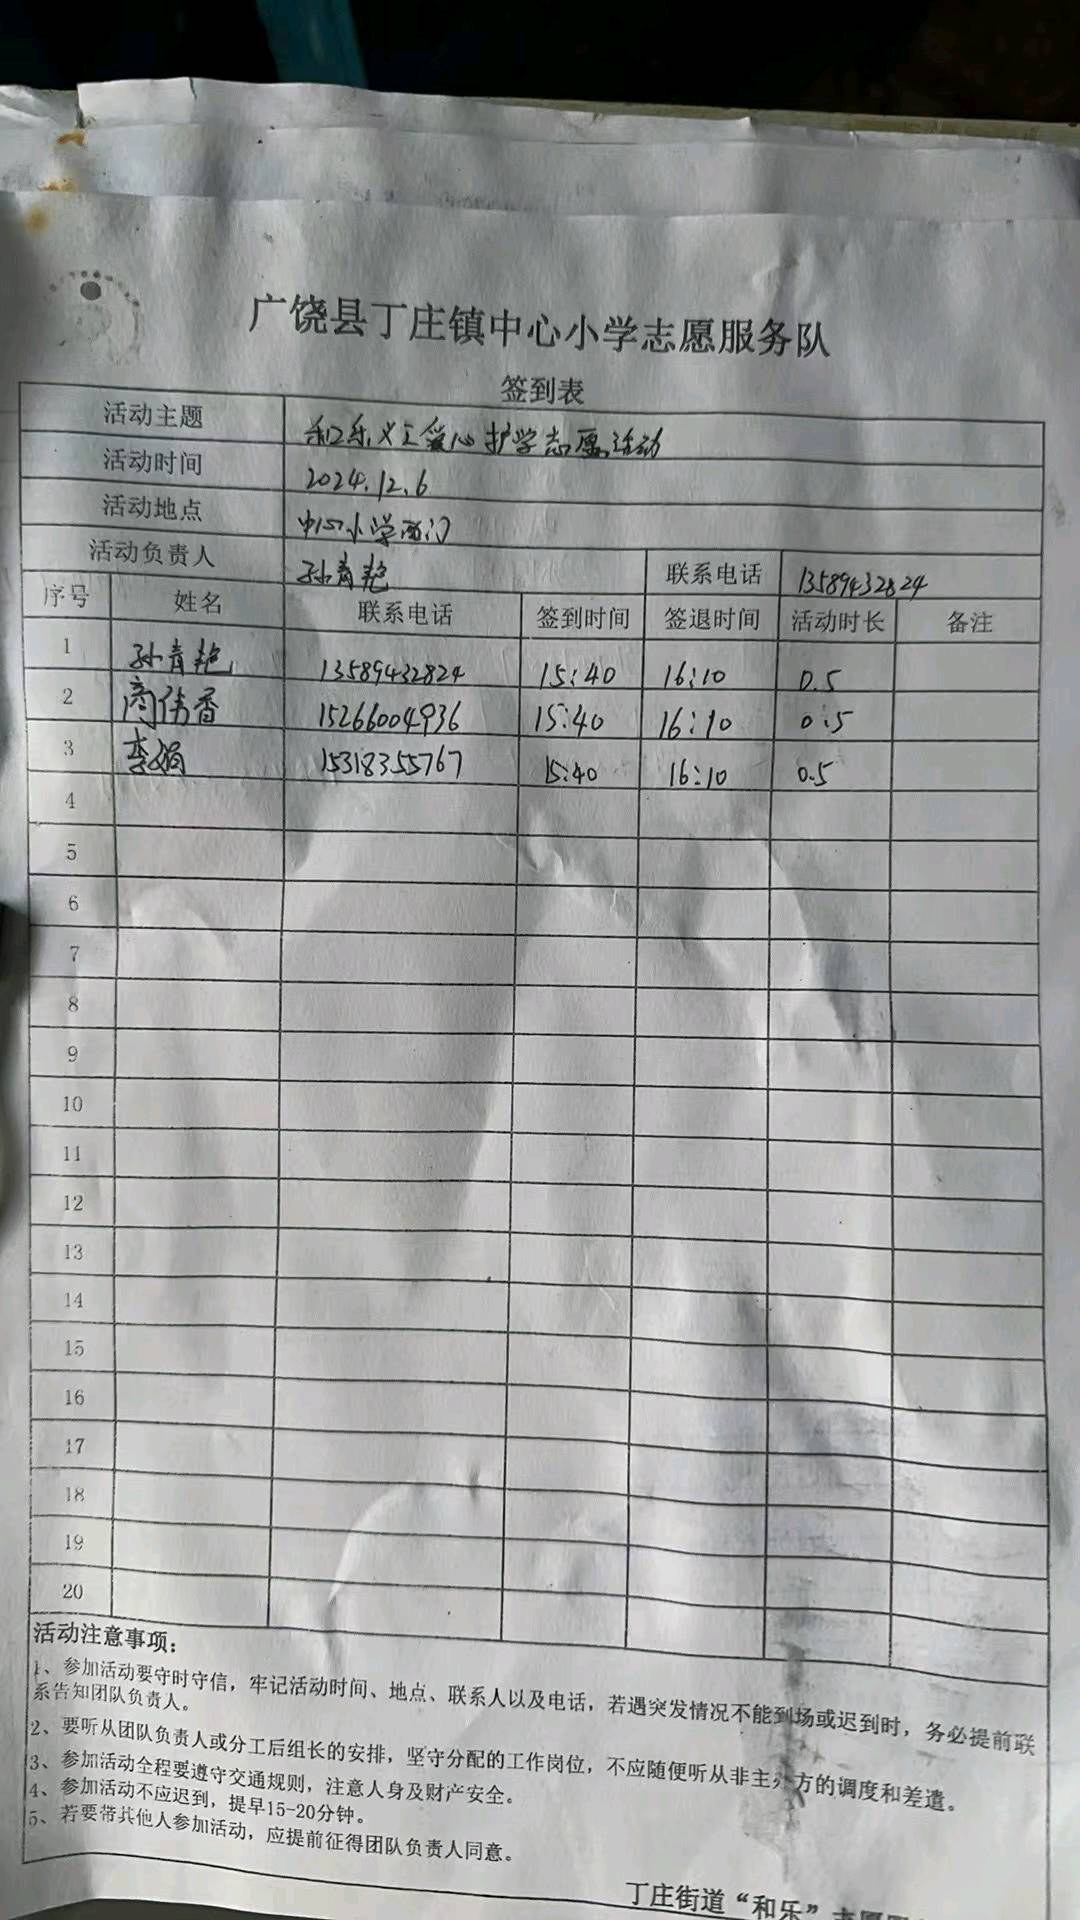 广饶县丁庄镇中心小学志愿服务队
签到表
活动主题 和乐义工爱心护学志愿活动
活动时间 2024.12.6
活动地点 中心小学西门
活动负责人 孙青艳 联系电话 13589432824
序号 姓名 联系电话 签到时间 签退时间 活动时长 备注
1 孙青艳 13589432824 15:40 16:10 0.5
2 商伟香 15266004936 15:40 16:10 0.5
3 李娟 15318355767 15:40 16:10 0.5
4
5
6
7
8
9
10
11
12
13
14
15
16
17
18
19
20
活动注意事项：
1、参加活动要守时守信，牢记活动时间、地点、联系人以及电话，若遇突发情况不能到场或迟到时，务必提前联
系告知团队负责人。
2、要听从团队负责人或分工后组长的安排，坚守分配的工作岗位，不应随便听从非主办方的调度和差遣。
3、参加活动全程要遵守交通规则，注意人身及财产安全。
4、参加活动不应迟到，提早15-20分钟。
5、若要带其他人参加活动，应提前征得团队负责人同意。
丁庄街道“和乐”志愿